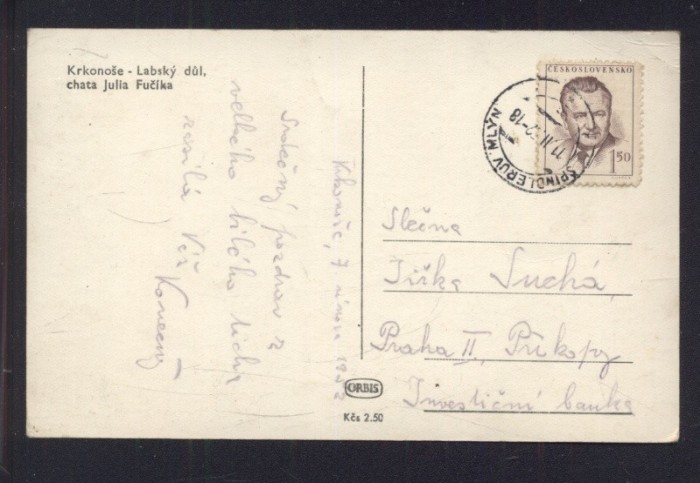 Krkonoše - Labský důl,
chata Julia Fučíka
ČESKOSLOVENSKO
1.50
ŠPINDLERŮV MLÝN
11.II. -18
Krkonoše, 7 února
Srdečný pozdrav z
velkého bílého ticha
zasílá Váš
Konečný
Slečna
Jiřka Suchá,
Praha II, Příkopy
Investiční banka
ORBIS
Kčs 2.50